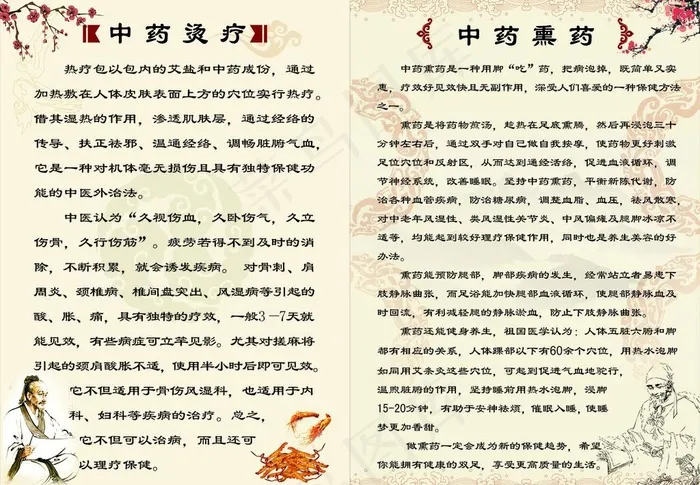 中药烫疗
热疗包以包内的艾盐和中药成份，通过
加热敷在人体皮肤表面上方的穴位实行热疗。
借其湿热的作用，渗透肌肤层，通过经络的
传导、扶正祛邪、温通经络、调畅脏腑气血，
它是一种对机体毫无损伤且具有独特保健功
能的中医外治法。
中医认为“久视伤血，久卧伤气，久立
伤骨，久行伤筋”。疲劳若得不到及时的消
除，不断积累，就会诱发疾病。 对骨刺、肩
周炎、颈椎病，椎间盘突出、风湿病等引起的
酸、胀、痛，具有独特的疗效，一般3—7天就
能见效，有些病症可立竿见影。尤其对搓麻将
引起的颈肩酸胀不适，使用半小时后即可见效。
它不但适用于骨伤风湿科，也适用于内
科、妇科等疾病的治疗。总之，
它不但可以治病，而且还可
以理疗保健。
中药熏药
中药熏药是一种用脚“吃”药，把病泡掉，既简单又实
惠，疗效好见效快且无副作用，深受人们喜爱的一种保健方法
之一。
熏药是将药物煎汤，趁热在足底熏腾，然后再浸泡三十
分钟左右后，通过双手对自己做自我按摩，使药物更好刺激
足位穴位和反射区，从而达到通经活络，促进血液循环，调
节神经系统，改善睡眠。坚持中药熏药，平衡新陈代谢，防
治各种血管疾病，防治糖尿病，调整血脂、血压，祛风散寒，
对中老年风湿性、类风湿性关节炎、中风偏瘫及腿脚冰凉不
适等，均能起到较好理疗保健作用，同时也是养生美容的好
办法。
熏药能预防腿部，脚部疾病的发生，经常站立者易患下
肢静脉曲张，而足浴能加快腿部血液循环，使腿部静脉血及
时回流，有利减轻腿的静脉淤血，防止下肢静脉曲张。
熏药还能健身养生，祖国医学认为：人体五脏六肠和脚
都有相应的关系，人体踝部以下有60余个穴位，用热水泡脚
如同用艾条灸这些穴位，可起到促进气血地驼行，
温煦脏腑的作用，坚持睡前用热水泡脚，浸脚
15-20分钟，有助于安神祛烦，催眠入睡，使睡
梦更加香甜。
做熏药一定会成为新的保健趋势，希望
你能拥有健康的双足，享受更高质量的生活。